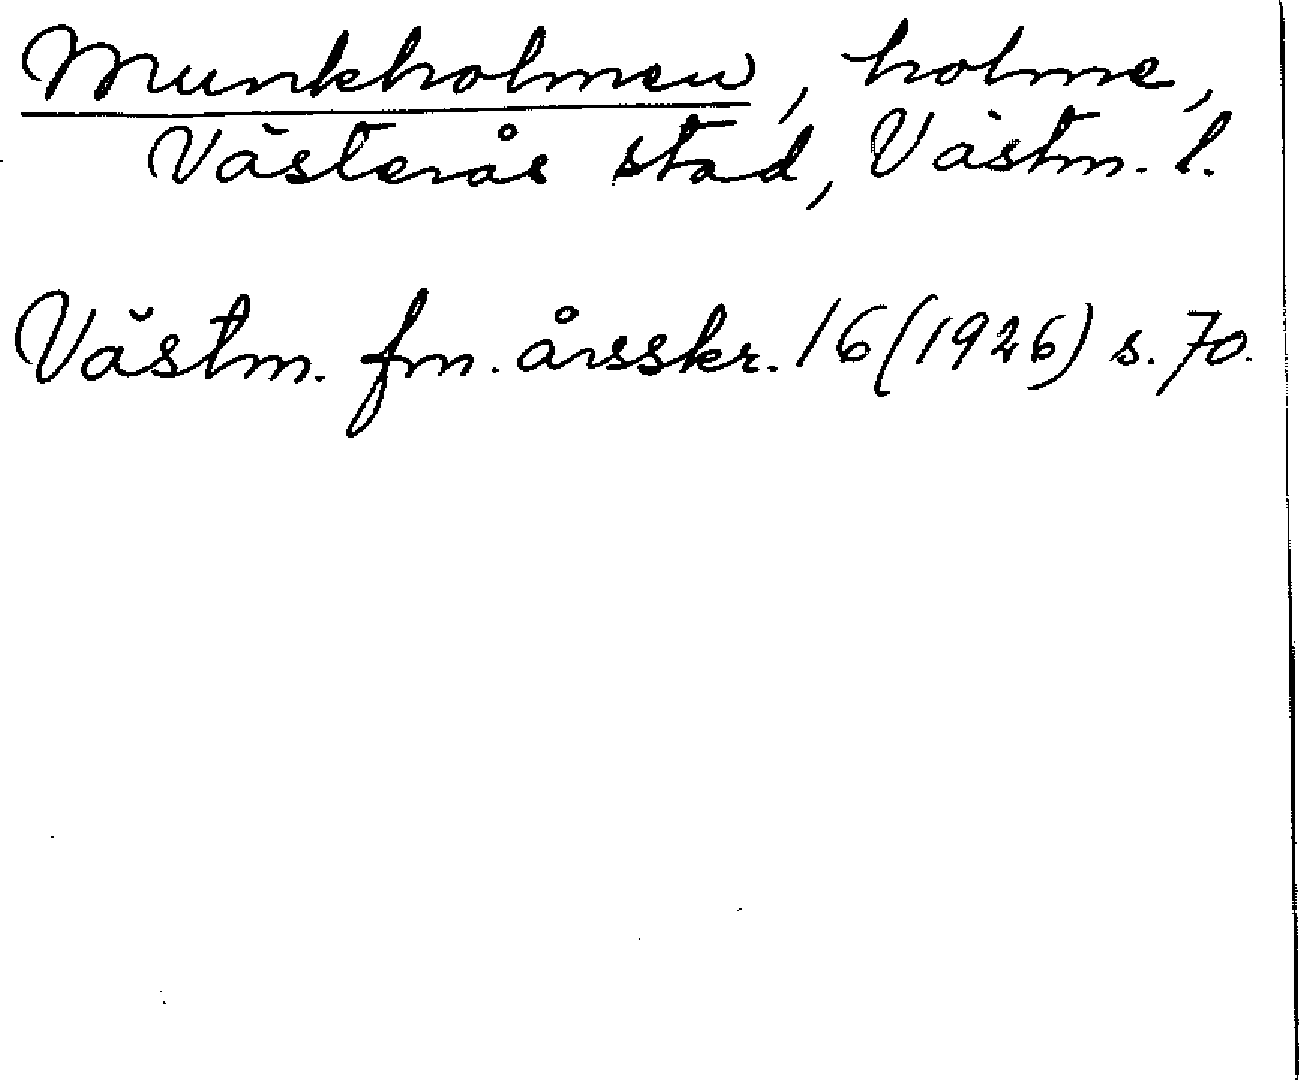 Munkholmen, holme,
Västerås stad, Västm. l.
Västm. fm. årsskr. 16 (1926) s. 70.